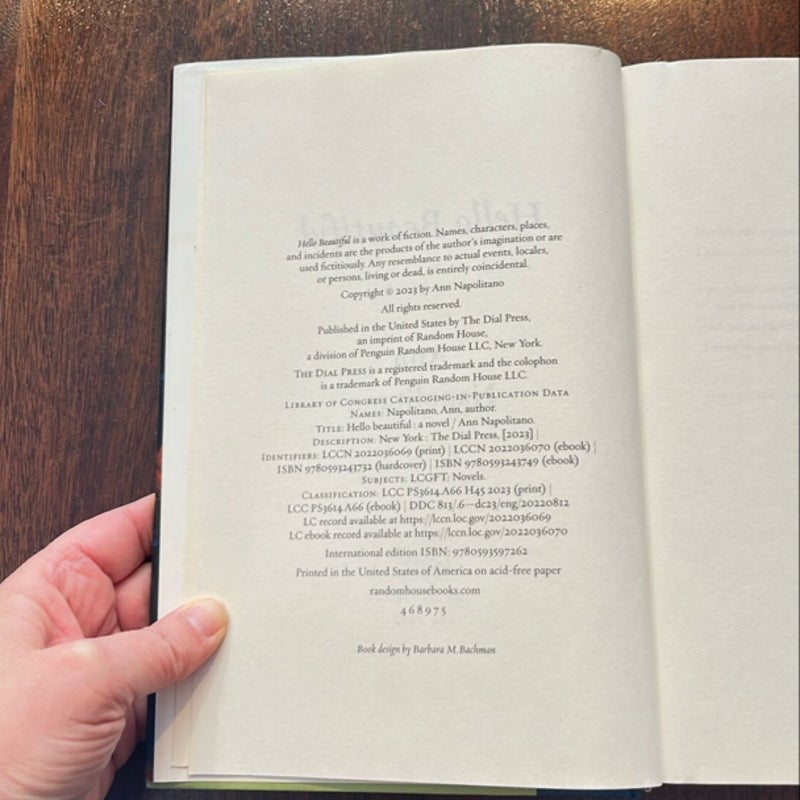 Hello Beautiful is a work of fiction. Names, characters, places,
and incidents are the products of the author's imagination or are
used fictitiously. Any resemblance to actual events, locales,
or persons, living or dead, is entirely coincidental.
Copyright © 2023 by Ann Napolitano
All rights reserved.
Published in the United States by The Dial Press,
an imprint of Random House,
a division of Penguin Random House LLC, New York.
THE DIAL PRESS is a registered trademark and the colophon
is a trademark of Penguin Random House LLC.
LIBRARY OF CONGRESS CATALOGING-IN-PUBLICATION DATA
NAMES: Napolitano, Ann, author.
TITLE: Hello beautiful : a novel / Ann Napolitano.
DESCRIPTION: New York : The Dial Press, [2023] |
IDENTIFIERS: LCCN 2022036069 (print) | LCCN 2022036070 (ebook) |
ISBN 9780593243732 (hardcover) | ISBN 9780593243749 (ebook)
SUBJECTS: LCGFT: Novels.
CLASSIFICATION: LCC PS3614.A66 H45 2023 (print) |
LCC PS3614.A66 (ebook) | DDC 813/.6—dc23/eng/20220812
LC record available at https://lccn.loc.gov/2022036069
LC ebook record available at https://lccn.loc.gov/2022036070
International edition ISBN: 9780593597262
Printed in the United States of America on acid-free paper
randomhousebooks.com
468975
Book design by Barbara M. Bachman